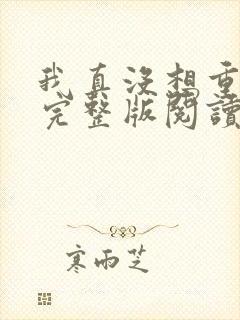 我真没想重
完整版閱讀
寒雨芝